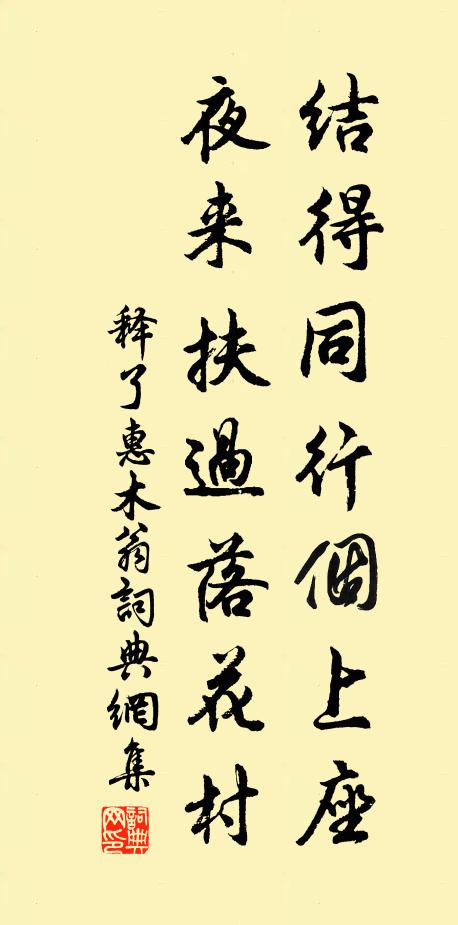 結得同行個上座
夜来扶過落花村
释了惠木翁詞典網集
詞典网印